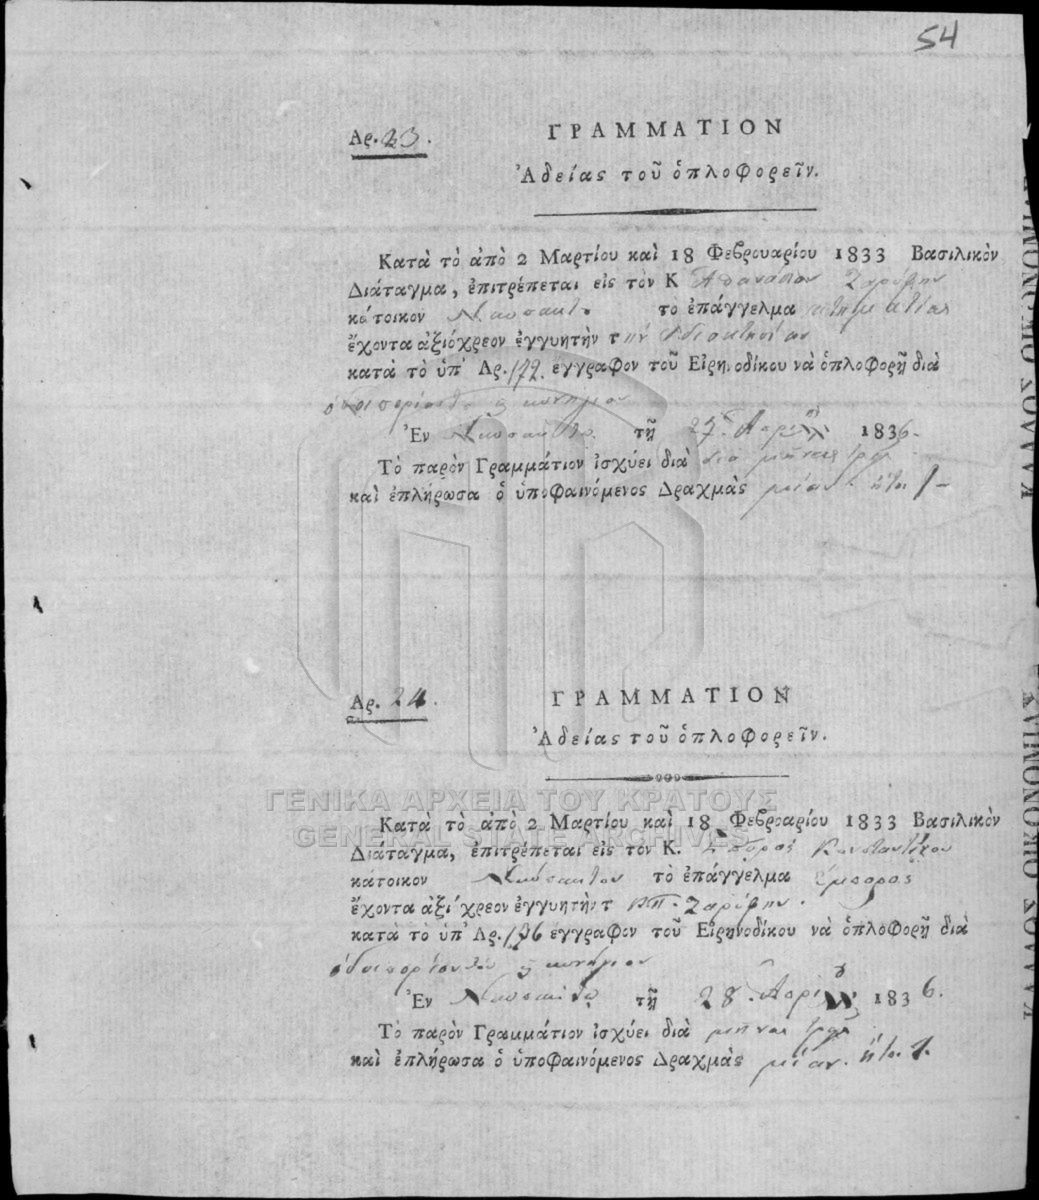 54
Αρ. 23.
ΓΡΑΜΜΑΤΙΟΝ
Ἀδείας τοῦ ὁπλοφορεῖν.
Κατὰ τὸ ἀπὸ 2 Μαρτίου καὶ 18 Φεβρουαρίου 1833 Βασιλικὸν
Διάταγμα, ἐπιτρέπεται εἰς τὸν Κ Ἀθανάσιον
κάτοικον Ναυπάκτου τὸ ἐπάγγελμα κτηματίας
ἔχοντα ἀξιόχρεον ἐγγυητὴν τ ὴν ἰδιοκτησίαν
κατὰ τὸ ὑπ' Αρ. 172 ἔγγραφον τοῦ Εἰρηνοδίκου νὰ ὁπλοφορῇ διὰ
κυνήγιον
Ἐν Ναυπάκτῳ τῇ 27 Ἀπριλ 1836.
Τὸ παρὸν Γραμμάτιον ἰσχύει διὰ μῆνας
καὶ ἐπλήρωσα ὁ ὑποφαινόμενος Δραχμὰς μίαν ἤτοι 1-
Αρ. 24.
ΓΡΑΜΜΑΤΙΟΝ
Ἀδείας τοῦ ὁπλοφορεῖν.
ΓΕΝΙΚΑ ΑΡΧΕΙΑ ΤΟΥ ΚΡΑΤΟΥΣ
GENERAL STATE ARCHIVES
Κατὰ τὸ ἀπὸ 2 Μαρτίου καὶ 18 Φεβροαρίου 1833 Βασιλικὸν
Διάταγμα, ἐπιτρέπεται εἰς τὸν Κ. Σπύρος Κονσταντίνου
κάτοικον Ναυπάκτου τὸ ἐπάγγελμα ἔμπορος
ἔχοντα ἀξιόχρεον ἐγγυητὴν τ
κατὰ τὸ ὑπ' Αρ. 176 ἔγγραφον τοῦ Εἰρηνοδίκου νὰ ὁπλοφορῇ διὰ
κυνήγιον
Ἐν Ναυπάκτῳ τῇ 28 Ἀπριλ 1836.
Τὸ παρὸν Γραμμάτιον ἰσχύει διὰ μῆνας
καὶ ἐπλήρωσα ὁ ὑποφαινόμενος Δραχμὰς μίαν. ἤτοι 1.